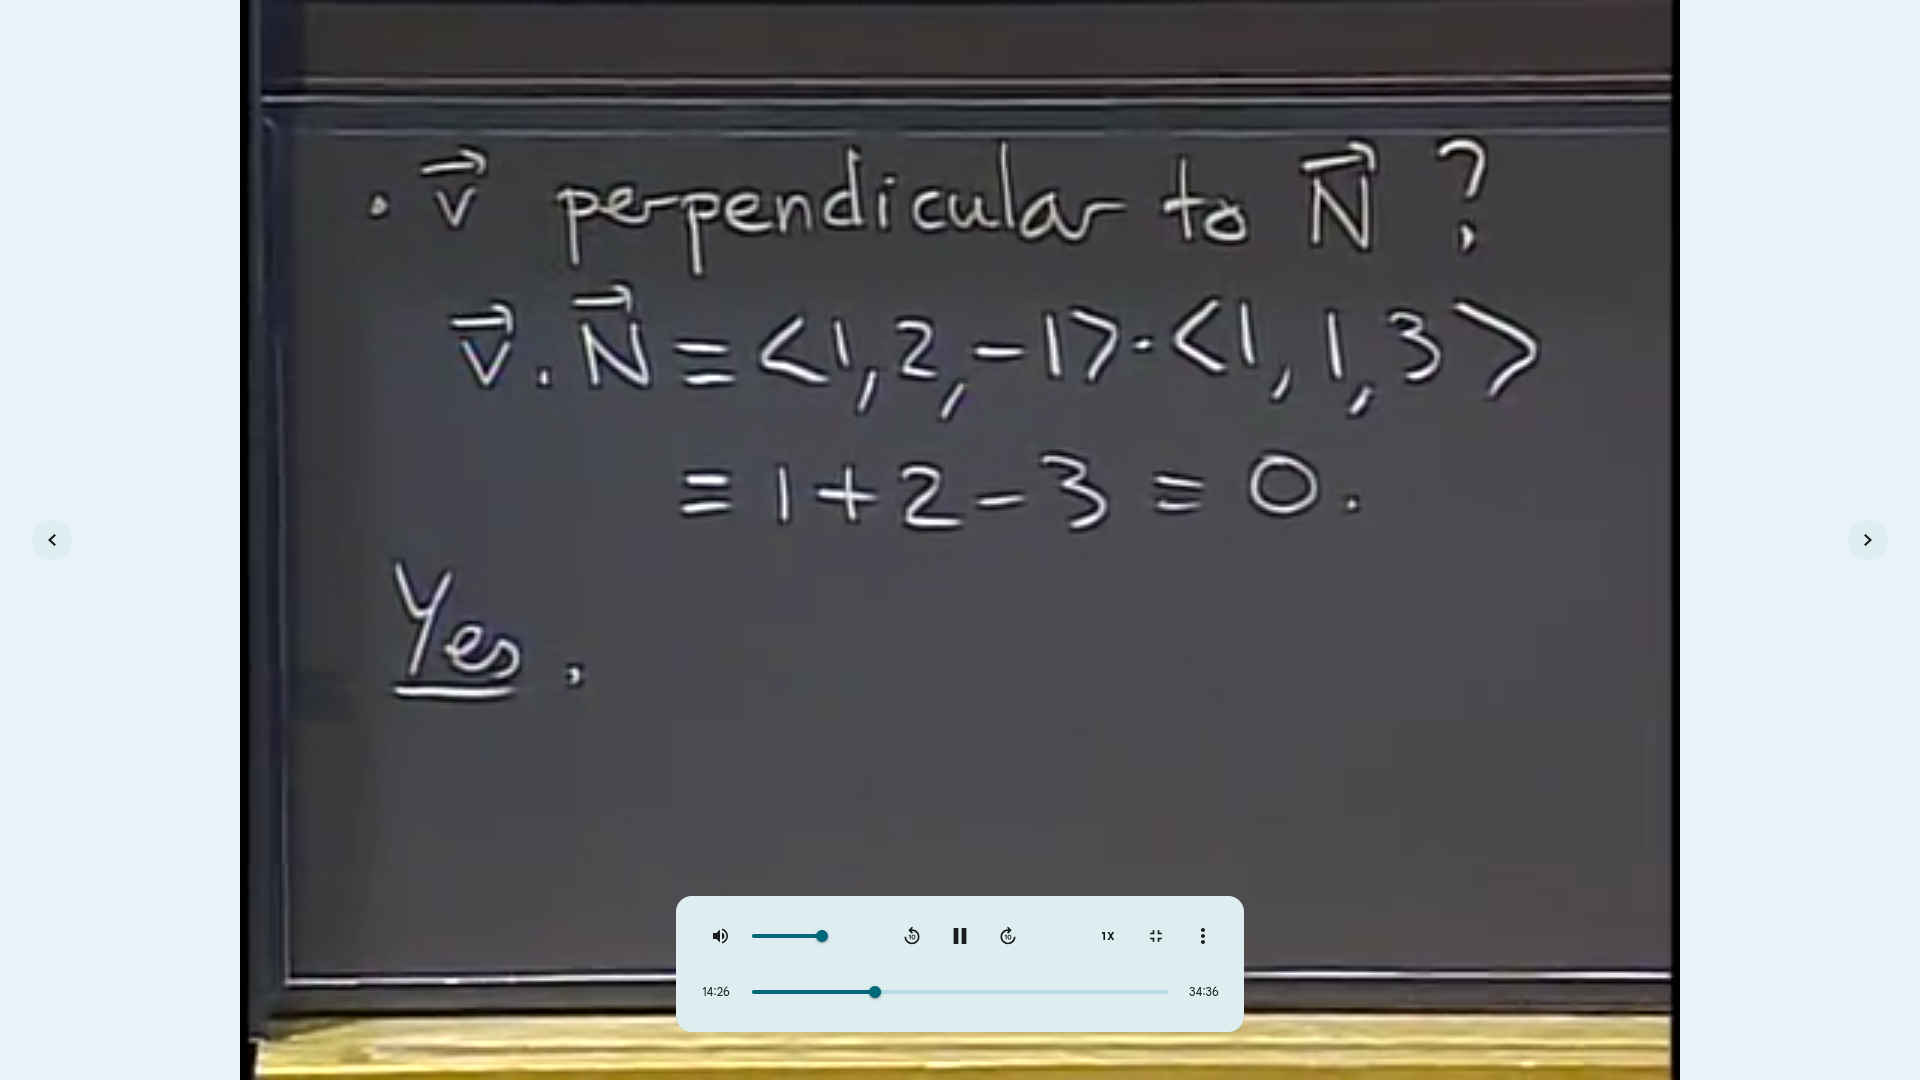 . v⃗ perpendicular to N⃗ ?
v⃗ . N⃗ = <1, 2, -1> · <1, 1, 3>
= 1 + 2 - 3 = 0.
Yes.
10
10
1X
14:26
34:36